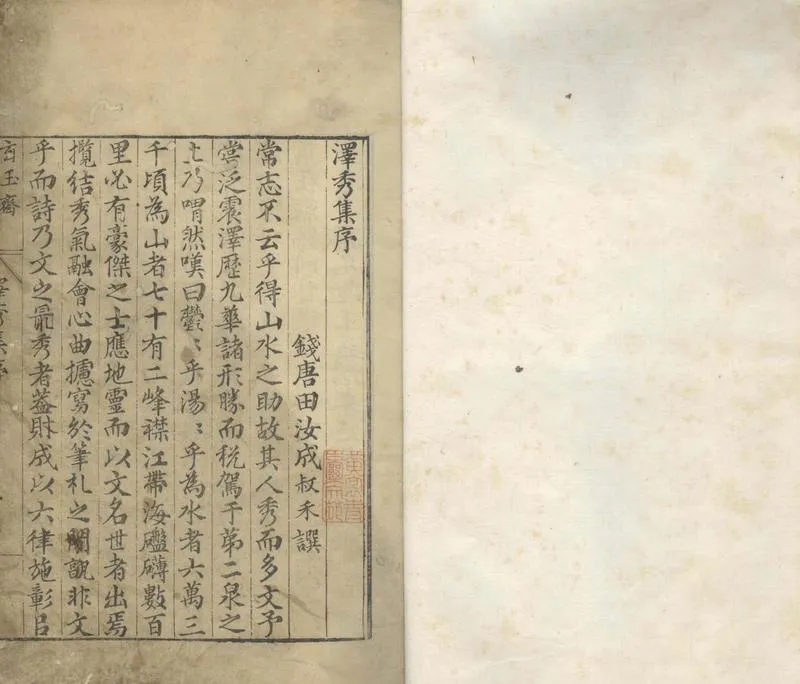 澤秀集序
錢唐田汝成叔禾譔
常志不云乎得山水之助故其人秀而多文予
嘗泛震澤歷九華諸形勝而税駕于第二泉之
上乃喟然嘆曰鬱〻乎湯〻乎為水者六萬三
千頃為山者七十有二峰襟江帶海礧礴數百
里必有豪傑之士應地靈而以文名世者出焉
攬結秀氣融會心曲攄寫於筆札之間孰非文
乎而詩乃文之最秀者蓋財成以六律施彰呂
玄玉齋
澤秀集序